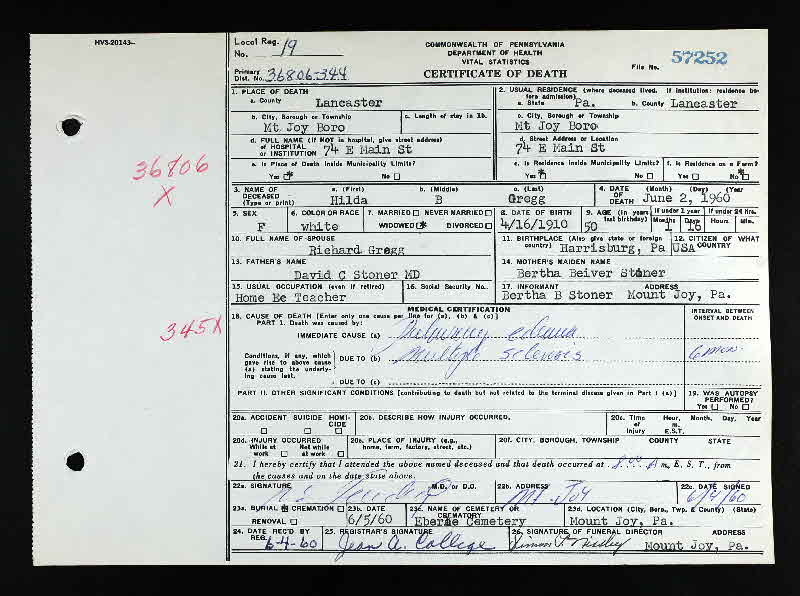 HVS-20143-
Local Reg. No. 19
COMMONWEALTH OF PENNSYLVANIA
DEPARTMENT OF HEALTH
VITAL STATISTICS
CERTIFICATE OF DEATH
File No. 57252
Primary Dist. No. 36806-344
36806
X
345X
1. PLACE OF DEATH
a. County Lancaster
2. USUAL RESIDENCE (where deceased lived. If institution: residence before admission)
a. State Pa. b. County Lancaster
b. City, Borough or Township
Mt Joy Boro
c. Length of stay in 1b.
c. City, Borough or Township
Mt Joy Boro
d. FULL NAME (If NOT in hospital, give street address) of HOSPITAL or INSTITUTION 74 E Main St
d. Street Address or Location
74 E Main St
e. Is Place of Death Inside Municipality Limits?
Yes No
e. Is Residence Inside Municipality Limits?
Yes No
f. Is Residence on a Farm?
Yes No
3. NAME OF DECEASED (Type or print)
a. (First) b. (Middle) c. (Last)
Hilda B Gregg
4. DATE OF DEATH (Month) (Day) (Year)
June 2, 1960
5. SEX
F
6. COLOR OR RACE
white
7. MARRIED NEVER MARRIED
WIDOWED DIVORCED
8. DATE OF BIRTH
4/16/1910
9. AGE (In years last birthday)
50
If under 1 year If under 24 hrs.
Months Days Hours Min.
1 16
10. FULL NAME OF SPOUSE
Richard Gregg
11. BIRTHPLACE (Also give state or foreign country)
Harrisburg, Pa
12. CITIZEN OF WHAT COUNTRY
USA
13. FATHER'S NAME
David C Stoner MD
14. MOTHER'S MAIDEN NAME
Bertha Beiver Stoner
15. USUAL OCCUPATION (even if retired)
Home Ec Teacher
16. Social Security No.
17. INFORMANT ADDRESS
Bertha B Stoner Mount Joy, Pa.
MEDICAL CERTIFICATION
18. CAUSE OF DEATH [Enter only one cause per line for (a), (b) & (c)]
PART I. Death was caused by:
INTERVAL BETWEEN ONSET AND DEATH
IMMEDIATE CAUSE (a) Pulmonary edema
Conditions, if any, which gave rise to above cause (a) stating the underlying cause last.
DUE TO (b) Multiple sclerosis
DUE TO (c)
PART II. OTHER SIGNIFICANT CONDITIONS [contributing to death but not related to the terminal disease given in Part I (a)]
19. WAS AUTOPSY PERFORMED?
Yes No
20a. ACCIDENT SUICIDE HOMICIDE
20b. DESCRIBE HOW INJURY OCCURRED.
20c. Time of Injury Hour, m. E.S.T. Month, Day, Year
20d. INJURY OCCURRED
While at work Not while at work
20e. PLACE OF INJURY (e.g., home, farm, factory, street, etc.)
20f. CITY, BOROUGH, TOWNSHIP COUNTY STATE
21. I hereby certify that I attended the above named deceased and that death occurred at m., E. S. T., from
the causes and on the date state above.
22a. SIGNATURE M.D. or D.O.
22b. ADDRESS
Mt Joy
22c. DATE SIGNED
23a. BURIAL CREMATION
REMOVAL
23b. DATE
6/5/60
23c. NAME OF CEMETERY OR CREMATORY
Eberle Cemetery
23d. LOCATION (City, Boro., Twp. & County) (State)
Mount Joy, Pa.
24. DATE REC'D BY REG.
6-4-60
25. REGISTRAR'S SIGNATURE
Jean A.
26. SIGNATURE OF FUNERAL DIRECTOR ADDRESS
Mount Joy, Pa.